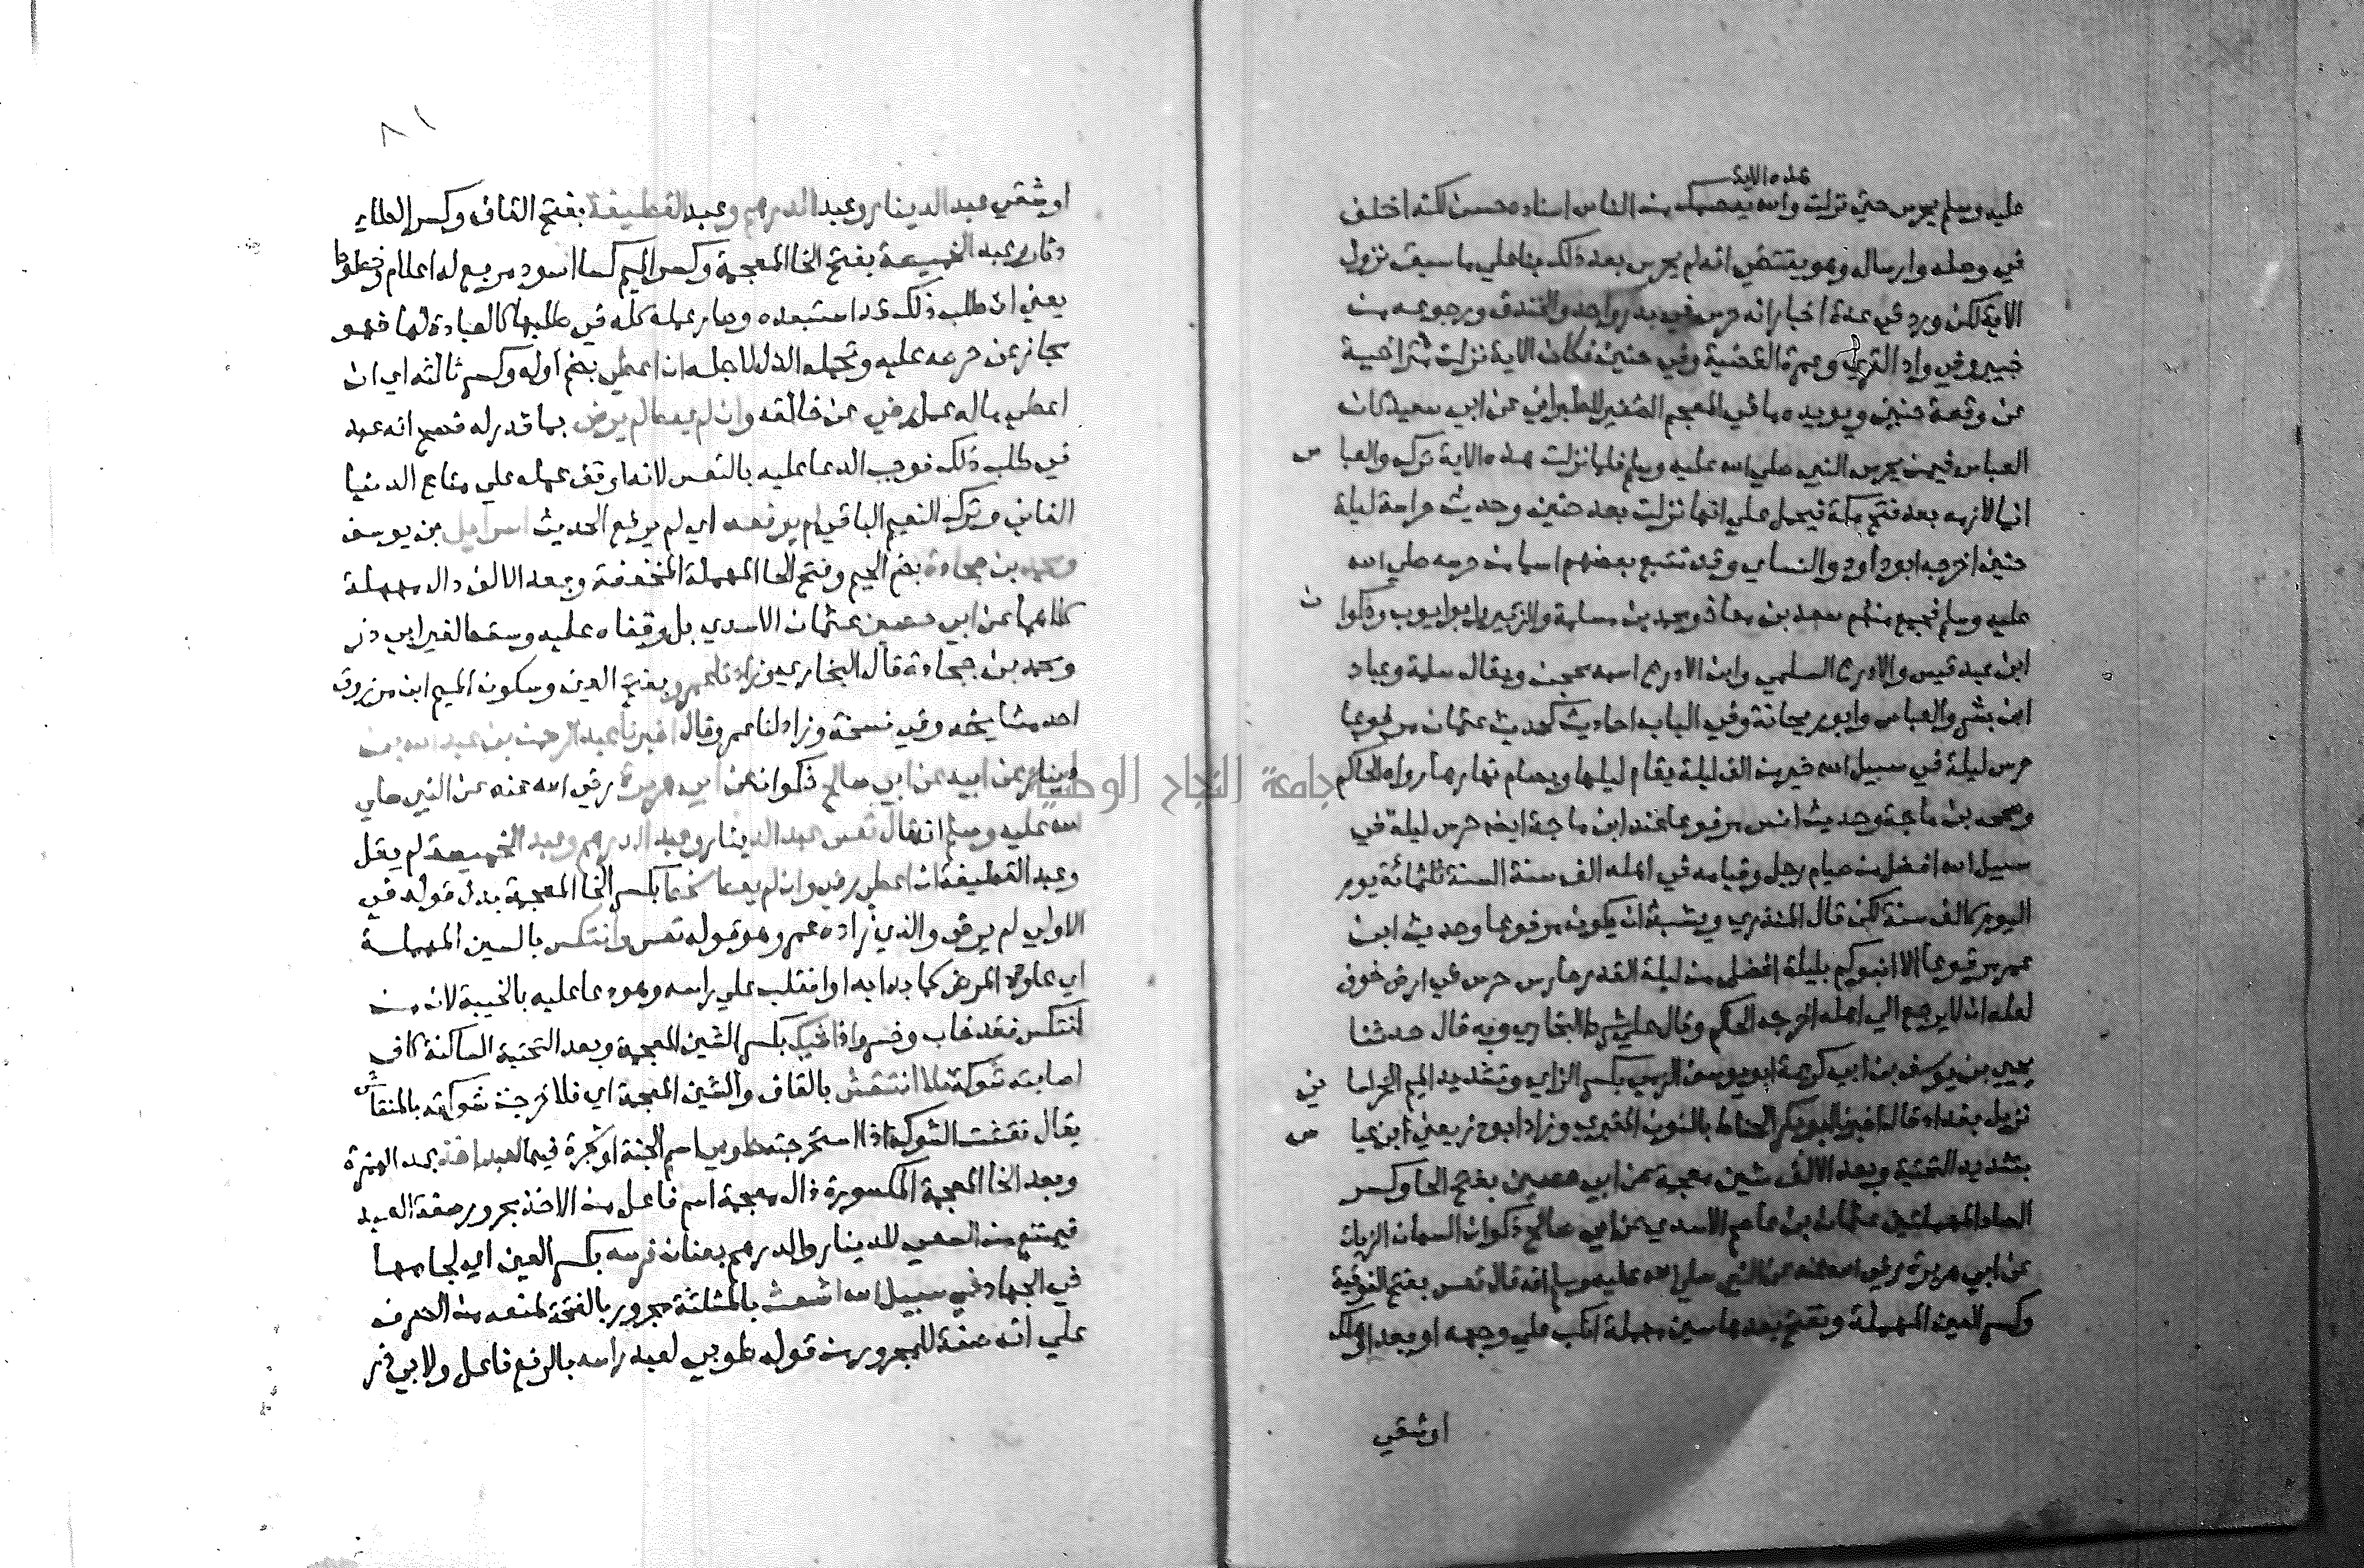 هذه الاية
عليه وسلم يحرس حتى نزلت والله يعصمك من الناس اسناده حسن لكنه اختلف
في وصله وارساله وهو يقتضي انه لم يحرس بعد ذلك بناء علي ما سبق نزول
الاية لكن ورد في عدة اخبار انه حرس في بدر واحد والخندق ورجوعه من
خيبر وفي واد القري وعمرة القضية وفي حنين فكان الاية نزلت متراخية
عن وقعة حنين ويويده ما في المعجم الصغير للطبراني عن ابي سعيد كان
العباس فيمن يحرس النبي صلي الله عليه وسلم فلما نزلت هذه الاية ترك والعباس
انما لازمه بعد فتح مكة فيحمل علي انها نزلت بعد حنين وحديث حراسة ليلة
حنين اخرجه ابو داود والنساي وقد تتبع بعضهم اسما من حرسه صلي الله
عليه وسلم فجمع منهم سعد بن معاذ ومحمد بن مسلمة والزبير وابو ايوب وذكوان
ابن عبد قيس والادرع السلمي وابن الادرع اسمه محجن ويقال سلمة وعباد
ابن بشر والعباس وابو ريحانة وفي الباب احاديث كحديث عثمان مرفوعا
حرس ليلة في سبيل الله خير من الف ليلة يقام ليلها ويصام نهارها رواه الحاكم
وصححه بن ماجة وحديث انس مرفوعا عند ابن ماجة ايضا حرس ليلة في
سبيل الله افضل من صيام رجل وقيامه في اهله الف سنة السنة ثلثمائة يوم
اليوم كالف سنة لكن قال المنذري ويشبه ان يكون موضوعا وحديث ابن
عمر مرفوعا الا انبوكم بليلة افضل من ليلة القدر حارس حرس في ارض خوف
لعله ان لا يرجع الي اهله اخرجه الحاكم وقال علي شرط البخاري وبه قال حدثنا
يحيي بن يوسف بن ابي كريمة ابو يوسف الزمي بكسر الزاي وتشديد الميم الخراساني
نزيل بغداد قال اخبرنا ابو بكر الحناط بالنون المقبري وزاد ابو ذر يعني ابن عياش
بتشديد التحتية وبعد الالف شين معجمة عن ابي حصين بفتح الحا وكسر
الصاد المهملتين عثمان بن عاصم الاسدي عن ابي صالح ذكوان السمان الزيات
عن ابي هريرة رضي الله عنه عن النبي صلي الله عليه وسلم انه قال تعس بفتح الفوقية
وكسر العين المهملة وتفتح بعدها سين مهملة انكب علي وجهه او بعد او هلك
او شقي
٨١
او شقي عبد الدينار وعبد الدرهم وعبد القطيفة بفتح القاف وكسر الطاء
دثار وعبد الخميصة بفتح الخا المعجمة وكسر الميم كسا اسود مربع له اعلام وخطوط
يعني ان طلب ذلك قد استعبده وصار عمله كله في طلبها كالعبادة لها فهو
مجاز عن حرصه عليه وتحمله الذل لاجله ان اعطي بضم اوله وكسر ثالثه اي ان
اعطي ماله عمل رضي عن خالقه وان لم يعط لم يرض بما قدر له فصح انه عبد
في طلب ذلك فوجب الدعا عليه بالتعس لانه اوقف عمله علي متاع الدنيا
الفاني وترك النعيم الباقي لم يرفعه اي لم يرفع الحديث اسراييل بن يوسف
ومحمد بن جحادة بضم الجيم وفتح الحا المهملة المخففة وبعد الالف دال مهملة
كلاهما عن ابي حصين عثمان الاسدي بل وقفاه عليه وسقط لغير ابي ذر
ومحمد بن جحادة قال البخاري وزادنا عمرو بفتح العين وسكون الميم ابن مرزوق
احد مشايخه وفي نسخة وزاد لنا عمرو قال اخبرنا عبد الرحمن بن عبد الله بن
دينار عن ابيه عن ابي صالح ذكوان عن ابي هريرة رضي الله عنه عن النبي صلي
الله عليه وسلم انه قال تعس عبد الدينار وعبد الدرهم وعبد الخميصة لم يقل
وعبد القطيفة ان اعطي رضي وان لم يعط سخط بكسر الخا المعجمة بدل قوله في
الاولي لم يرض والذي زاده عمرو هو قوله تعس وانتكس بالسين المهملة
اي عاوده المرض كما بدا به او انقلب علي راسه وهو دعا عليه بالخيبة لان من
انتكس فقد خاب وخسر واذا شيك بكسر الشين المعجمة وبعد التحتية الساكنة كاف
اصابته شوكة فلا انتقش بالقاف والشين المعجمة اي فلا خرجت شوكته بالمنقاش
يقال نقشت الشوكة اذا استخرجتها طوبي اسم الجنة او شجرة فيها لعبد اخذ بمد الهمزة
وبعد الخا المعجمة المكسورة ذال معجمة اسم فاعل من الاخذ مجرور صفة العبد
فيمتنع من السعي للدينار والدرهم بعنان فرسه بكسر العين اي لجامها
في الجهاد في سبيل الله اشعث بالمثلثة مجرور بالفتحة لمنعه من الصرف
علي انه صفة للمجرور من قوله طوبي لعبد راسه بالرفع فاعل ولابي ذر
جامعة النجاح الوطنية